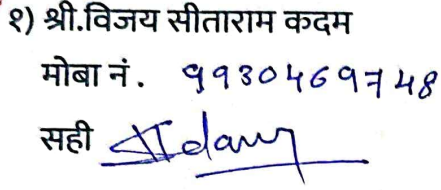 १) श्री.विजय सीताराम कदम
मोबा नं. 9930469748
सही